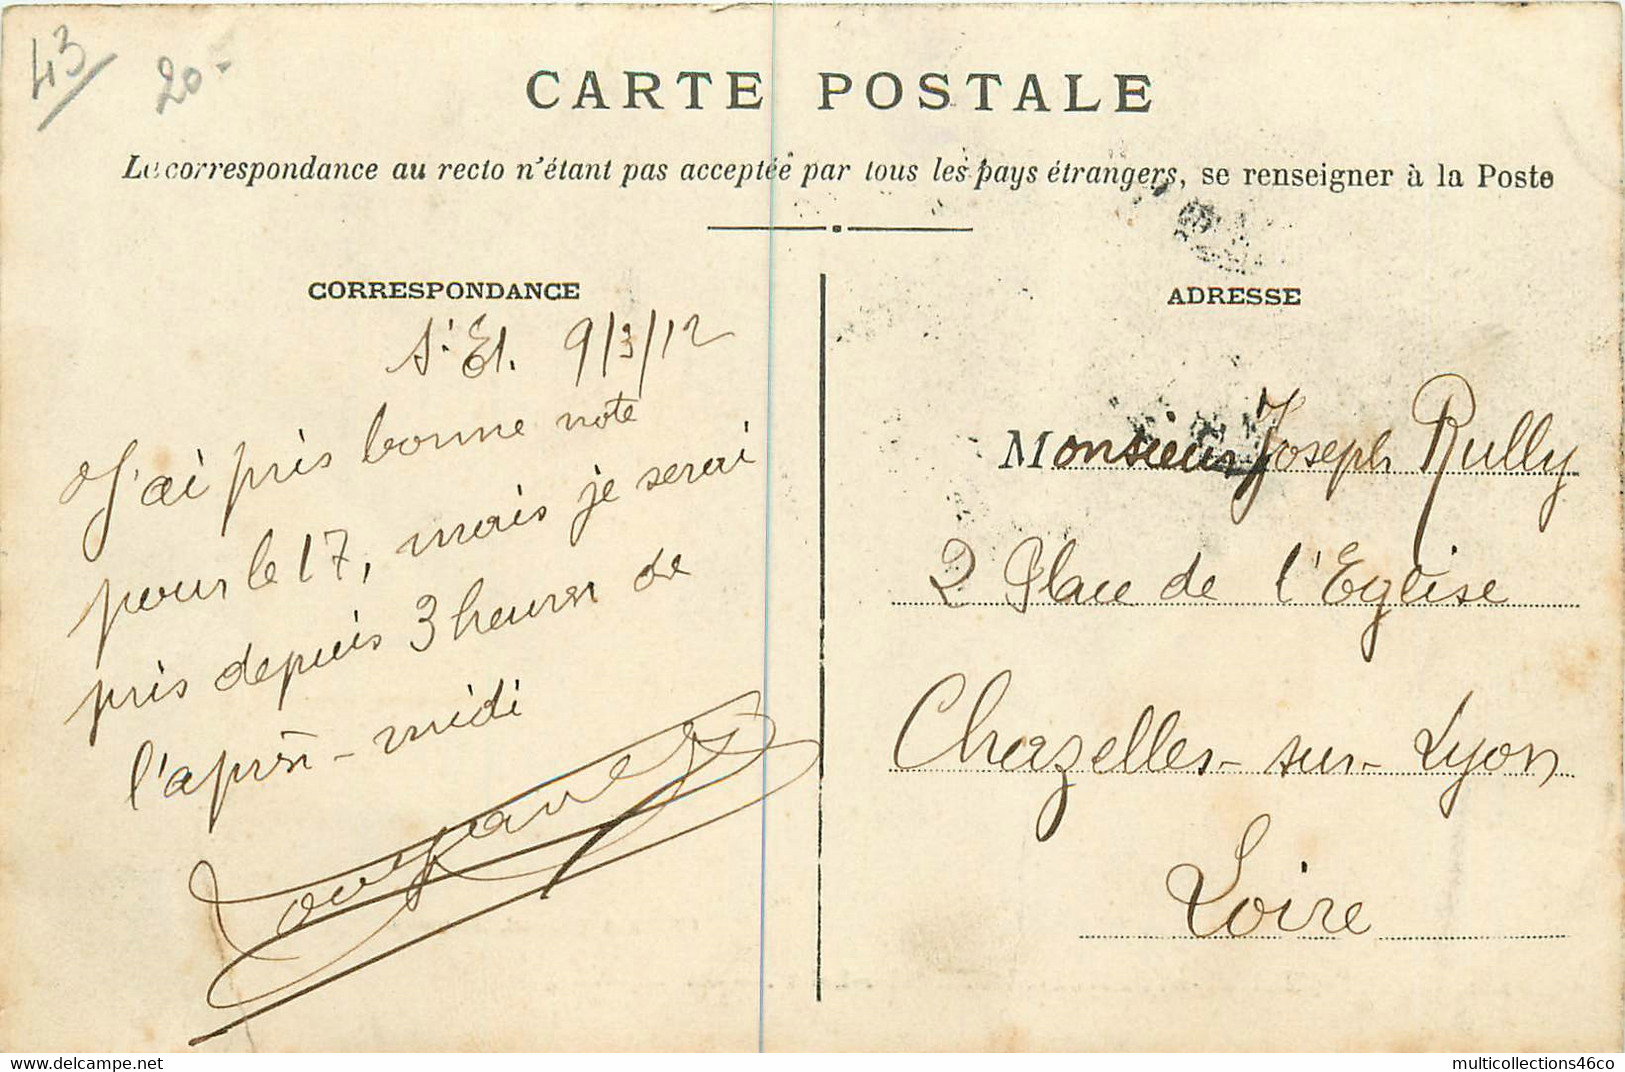 43
20-
CARTE POSTALE
La correspondance au recto n'étant pas acceptée par tous les pays étrangers, se renseigner à la Poste
CORRESPONDANCE
ADRESSE
St Et. 9/3/12
J'ai pris bonne note
pour le 17, mais je serai
pris depuis 3 heures de
l'après-midi
Monsieur Joseph Rully
2 Place de l'Eglise
Chazelles-sur-Lyon
Loire
Delcampe.net
multicollections46co